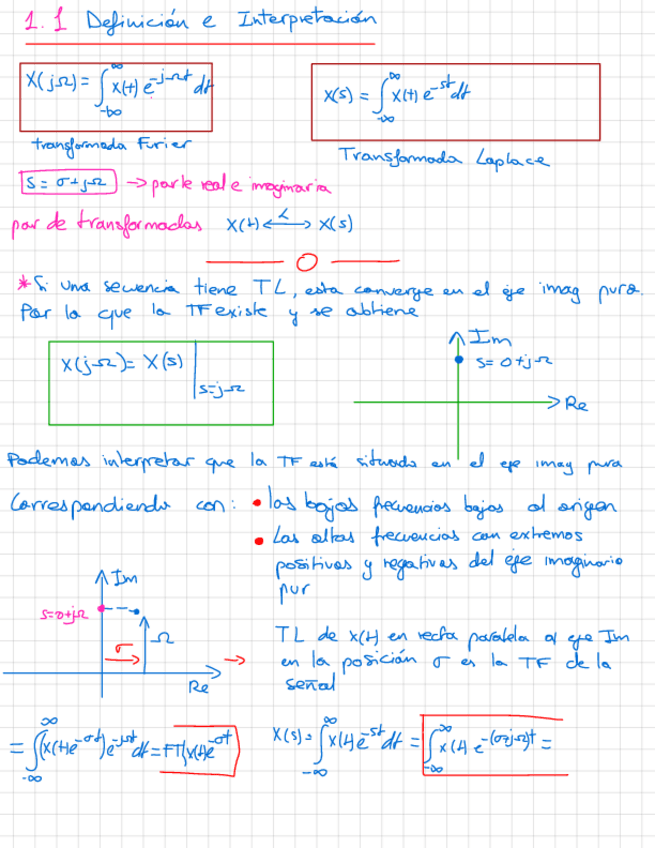 1.1 Definición e Interpretación
X(jΩ) = ∫_{-∞}^{∞} x(t) e^{-jΩt} dt
transformada Furier
X(s) = ∫_{-∞}^{∞} x(t) e^{-st} dt
Transformada Laplace
s = σ+jΩ → parte real e imaginaria
par de transformadas x(t) ←L→ X(s)
* Si una secuencia tiene TL, esta converge en el eje imag puro.
Por la que la TF existe y se obtiene
X(jΩ) = X(s) |_{s=jΩ}
Im
s = 0+jΩ
Re
Podemos interpretar que la TF está situada en el eje imag puro
Correspondiendo con: • las bajas frecuencias bajas al origen
• Las altas frecuencias con extremos
positivas y negativas del eje imaginario
pur
Im
s=0+jΩ
Ω
σ
Re
→ TL de x(t) en recta paralela al eje Im
en la posición σ es la TF de la
señal
X(s) = ∫_{-∞}^{∞} x(t) e^{-st} dt = ∫_{-∞}^{∞} x(t) e^{-(σ+jΩ)t} =
= ∫_{-∞}^{∞} (x(t) e^{-σt}) e^{-jΩt} dt = FT{x(t) e^{-σt}